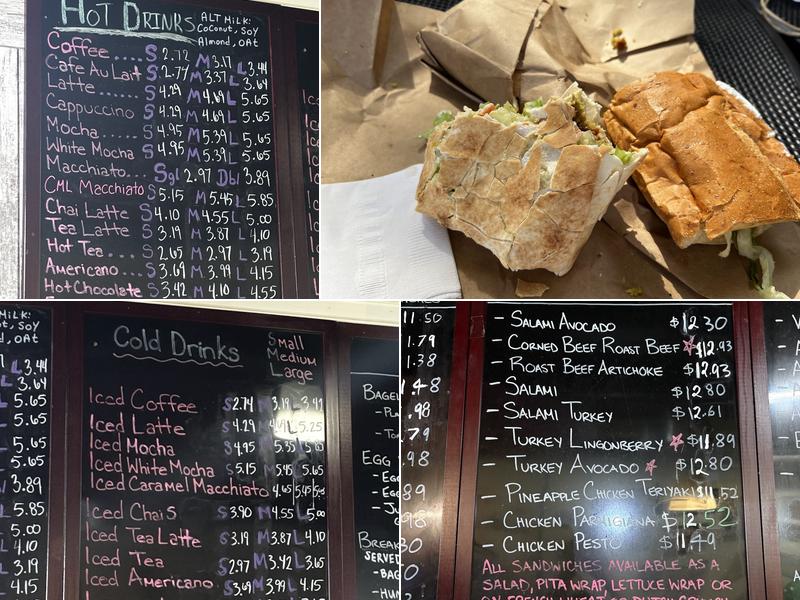 Hot Drinks
Alt Milk:
Coconut, Soy
Almond, Oat
Coffee.... S 2.72 M 3.17 L 3.44
Cafe Au Lait S 2.77 M 3.37 L 3.64
Latte..... S 4.29 M 4.69 L 5.65
Cappuccino S 4.29 M 4.69 L 5.65
Mocha..... S 4.95 M 5.39 L 5.65
White Mocha S 4.95 M 5.39 L 5.65
Macchiato... Sgl 2.97 Dbl 3.89
CML Macchiato S 5.15 M 5.45 L 5.85
Chai Latte S 4.10 M 4.55 L 5.00
Tea Latte S 3.19 M 3.87 L 4.10
Hot Tea... S 2.65 M 2.97 L 3.19
Americano... S 3.69 M 3.99 L 4.15
Hot Chocolate S 3.42 M 4.10 L 4.55
Milk:
t, Soy
d, Oat
L 3.44
L 3.64
5.65
5.65
5.65
5.65
3.89
5.85
5.00
4.10
3.19
4.15
Cold Drinks
Small
Medium
Large
Iced Coffee S 2.74 M 3.19 L 3.41
Iced Latte S 4.29 L 5.25
Iced Mocha S 4.95 M 5.35
Iced White Mocha S 5.15 M 5.45 5.65
Iced Caramel Macchiato 4.65
Iced Chai S 3.90 M 4.55 L 5.00
Iced Tea Latte S 3.19 M 3.87 L 4.10
Iced Tea S 2.97 M 3.42 L 3.65
Iced Americano S 3.69 M 3.99 L 4.15
Bagel
Egg
Break
Served
- Bag
11.50
1.79
1.38
.98
.79
.98
- Salami Avocado $12.30
- Corned Beef Roast Beef $12.93
- Roast Beef Artichoke $12.93
- Salami $12.80
- Salami Turkey $12.61
- Turkey Lingonberry $11.89
- Turkey Avocado $12.80
- Pineapple Chicken Teriyaki $11.52
- Chicken Parmigiana $12.52
- Chicken Pesto $11.49
All sandwiches available as a
salad, pita wrap, lettuce wrap or